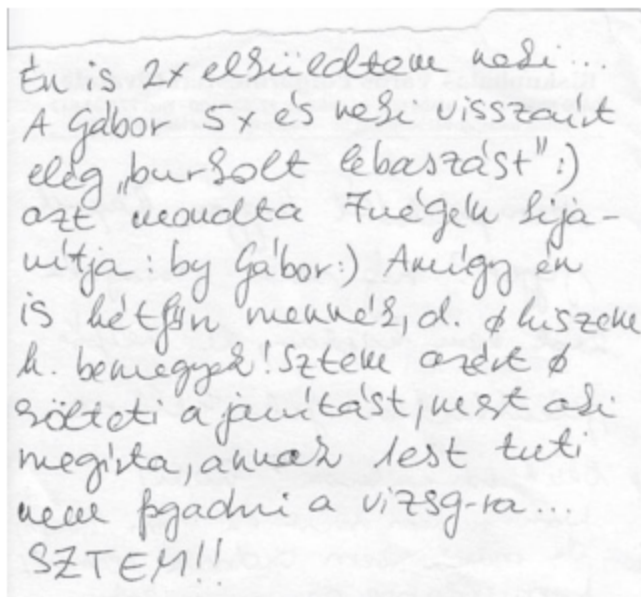 Én is 2x elküldtem neki...
A Gábor 5x és neki visszaírt
elég „burkolt lebaszást" :)
azt mondta 7végén kija-
vítja : by Gábor :) Amúgy én
is hétfőn mennék, d. ø hiszem
h. bemegyek! Sztem azért ø
költeti a javítást, mert aki
megírta, annak lest tuti
nem fogadni a vizsg-ra...
SZTEM!!